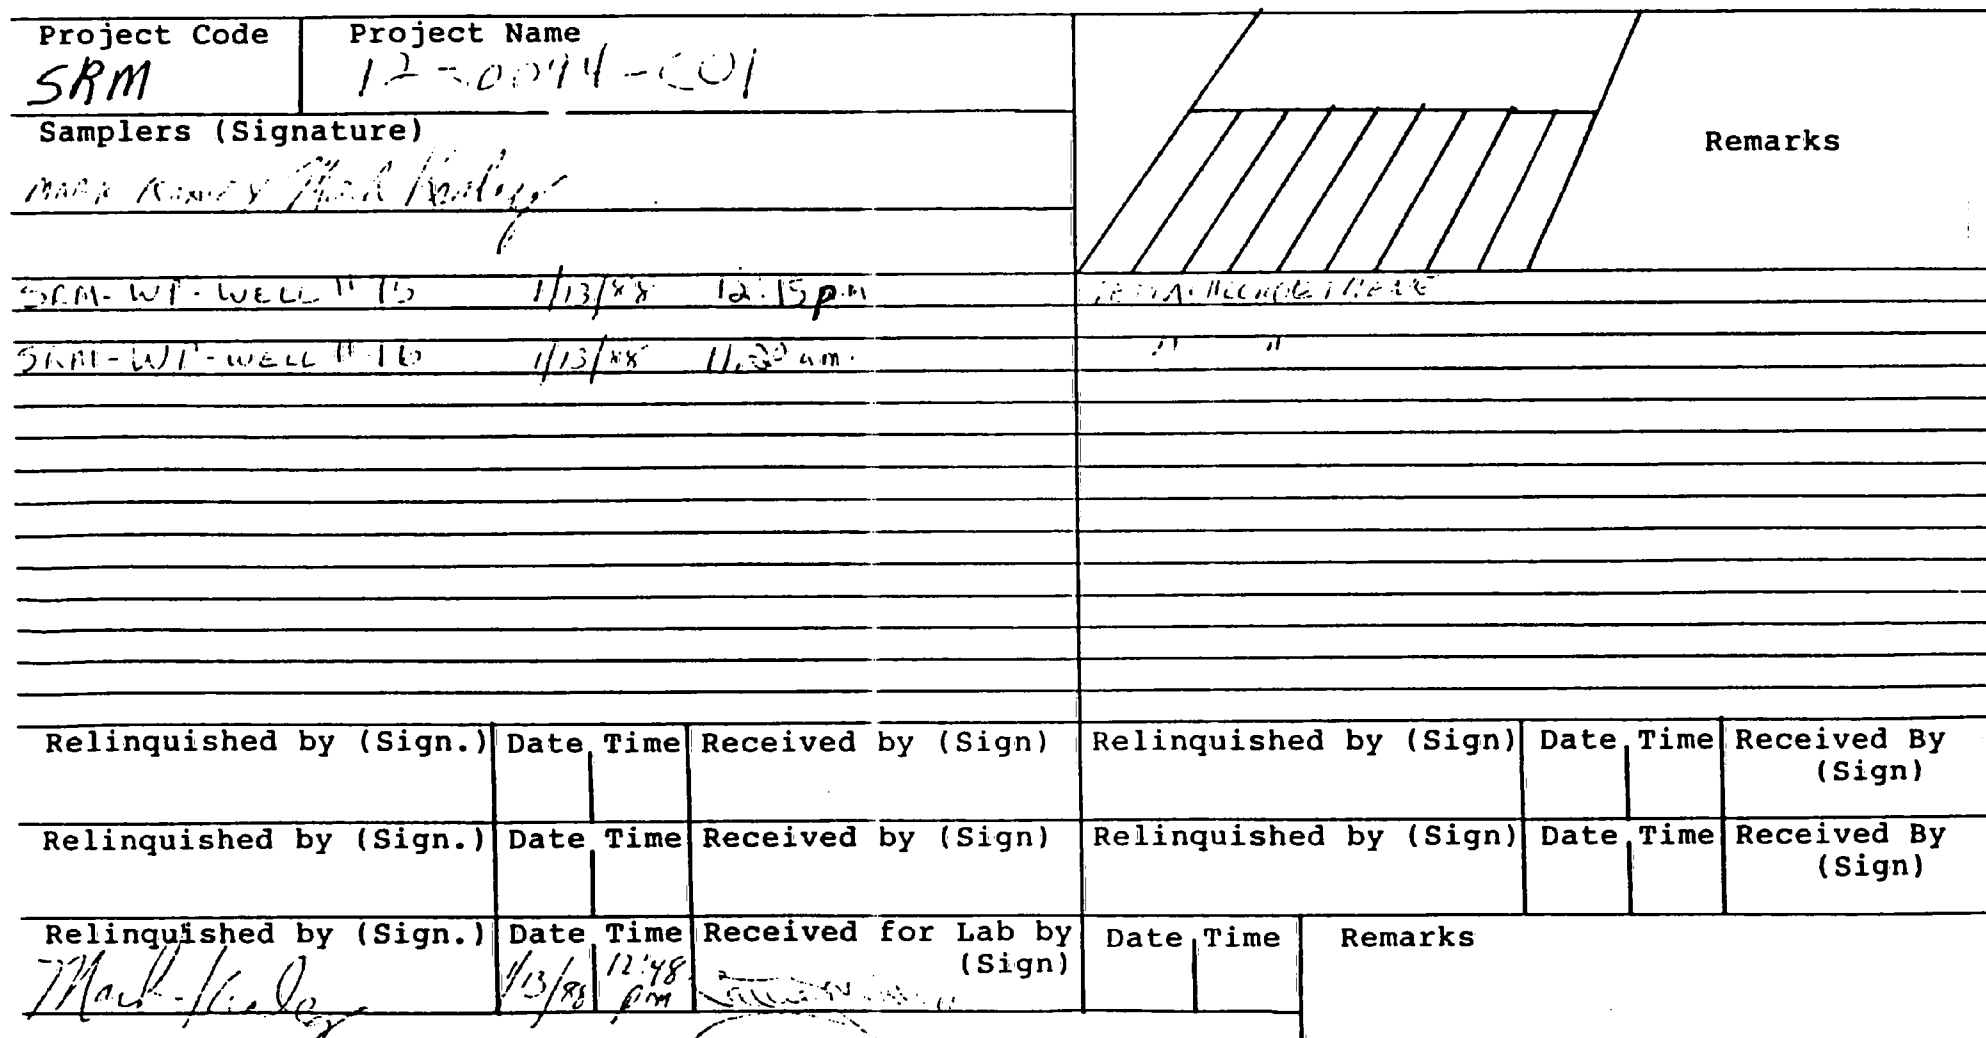 Project Code Project Name
SRM 12-0094-C01
Samplers (Signature)
Mark
Remarks
SRM-WT-WELL # 15 1/13/88 12:15 p.m
SRM-WT-WELL # 16 1/13/88 11:30 a.m. " "
Relinquished by (Sign.) Date Time Received by (Sign) Relinquished by (Sign) Date Time Received By
(Sign)
Relinquished by (Sign.) Date Time Received by (Sign) Relinquished by (Sign) Date Time Received By
(Sign)
Relinquished by (Sign.) Date Time Received for Lab by Date Time Remarks
(Sign)
Mark 1/13/88 12:48
pm